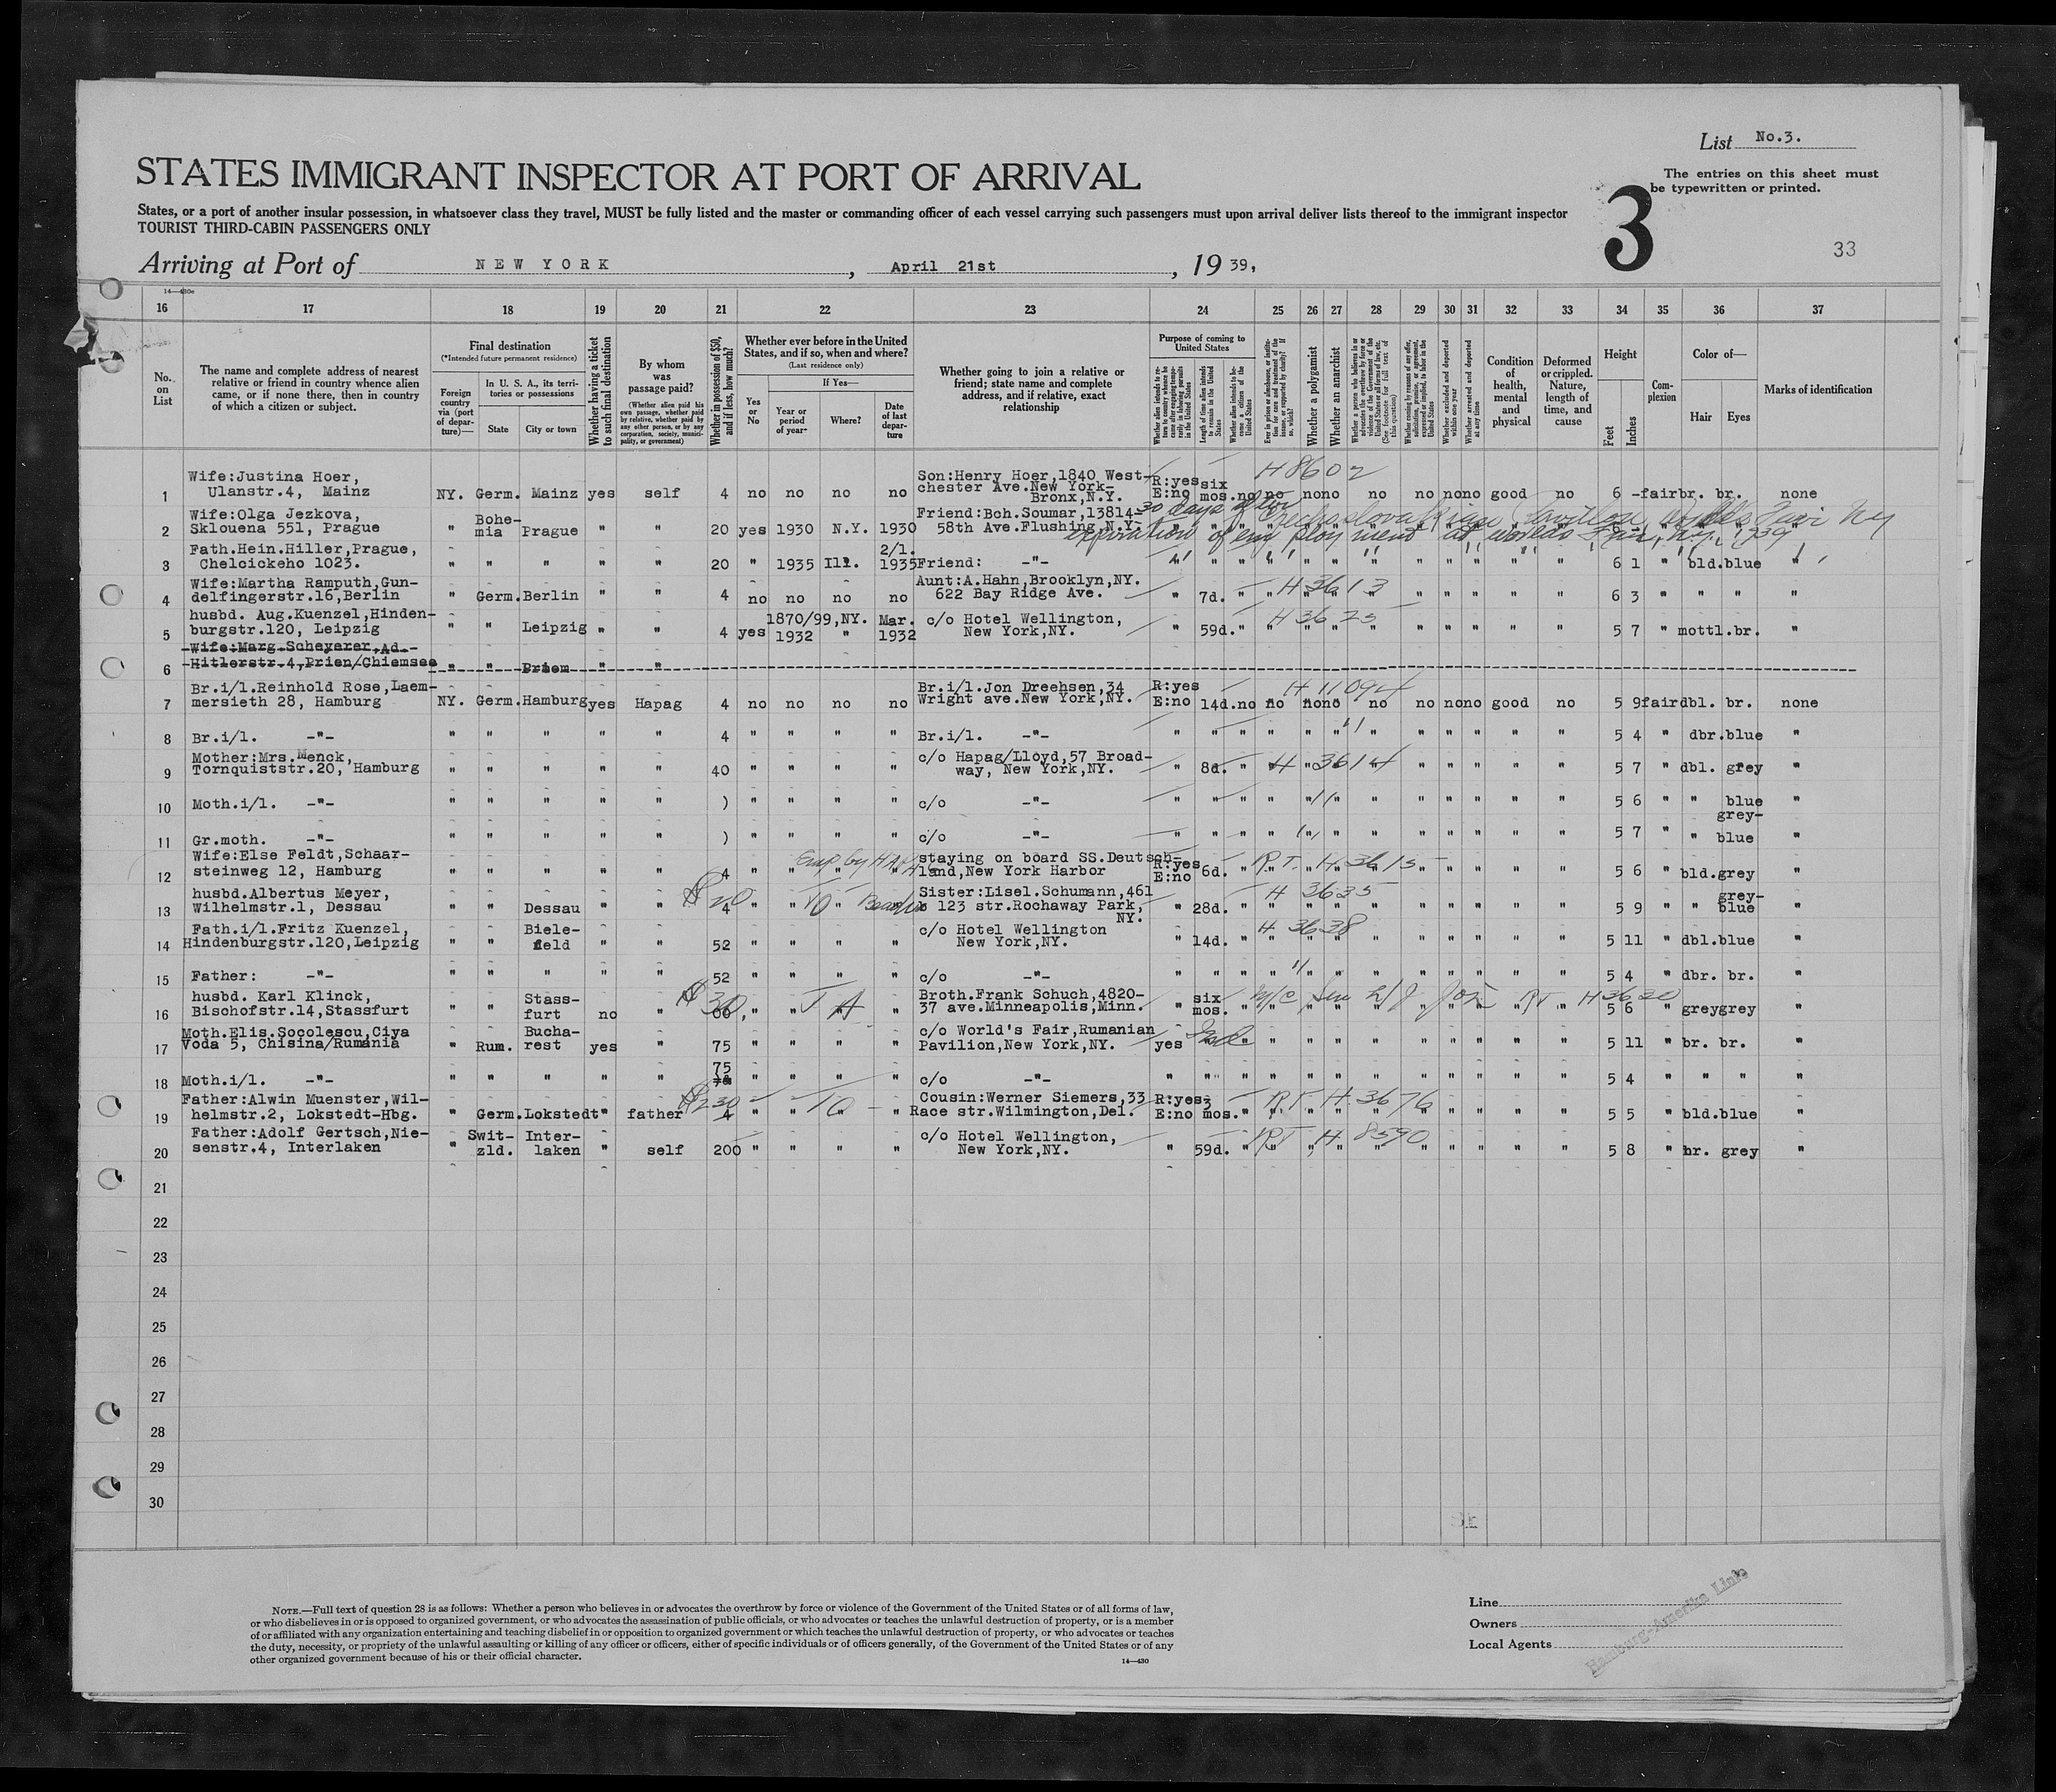 List No.3.
STATES IMMIGRANT INSPECTOR AT PORT OF ARRIVAL
The entries on this sheet must
be typewritten or printed.
3
States, or a port of another insular possession, in whatsoever class they travel, MUST be fully listed and the master or commanding officer of each vessel carrying such passengers must upon arrival deliver lists thereof to the immigrant inspector
TOURIST THIRD-CABIN PASSENGERS ONLY
33
Arriving at Port of NEW YORK , April 21st , 19 39,
16 17 18 19 20 21 22 23 24 25 26 27 28 29 30 31 32 33 34 35 36 37
No. on List
The name and complete address of nearest relative or friend in country whence alien came, or if none there, then in country of which a citizen or subject.
Final destination
(*Intended future permanent residence)
Foreign country via (port of departure)—
In U. S. A., its territories or possessions
State
City or town
Whether having a ticket to such final destination
By whom was passage paid?
(Whether alien paid his own passage, whether paid by relative, whether paid by any other person, or by any corporation, society, municipality, or government)
Whether in possession of $50, and if less, how much?
Whether ever before in the United States, and if so, when and where?
(Last residence only)
Yes or No
If Yes—
Year or period of year-
Where?
Date of last departure
Whether going to join a relative or friend; state name and complete address, and if relative, exact relationship
Purpose of coming to United States
Length of time alien intends to remain in the United States
Whether alien intends to become a citizen of the United States
Whether a polygamist
Whether an anarchist
Whether excluded and deported within one year
Whether arrested and deported at any time
Condition of health, mental and physical
Deformed or crippled. Nature, length of time, and cause
Height
Feet
Inches
Complexion
Color of—
Hair
Eyes
Marks of identification
H 8602
1 Wife:Justina Hoer, Ulanstr.4, Mainz NY. Germ. Mainz yes self 4 no no no no Son:Henry Hoer,1840 West-chester Ave.New York-Bronx,N.Y. R:yes E:no six mos. no no no no no no no no good no 6 - fair br. br. none
30 days after
expiration of employment at Worlds Fair, N.Y., 1939
2 Wife:Olga Jezkova, Sklouena 551, Prague " Bohe-mia Prague " " 20 yes 1930 N.Y. 1930 Friend:Boh.Soumar,13814-58th Ave.Flushing,N.Y.
3 Fath.Hein.Hiller,Prague, Chelcickeho 1023. " " " " " 20 " 1935 Ill. 2/1. 1935 Friend: -"- 6 1 " bld. blue "
4 Wife:Martha Ramputh,Gun-delfingerstr.16,Berlin " Germ. Berlin " " 4 no no no no Aunt:A.Hahn,Brooklyn,NY. 622 Bay Ridge Ave. " 7d. " H 3613 6 3 " " " "
5 husbd. Aug.Kuenzel,Hinden-burgstr.120, Leipzig " " Leipzig " " 4 yes 1870/99,NY. 1932 " Mar. 1932 c/o Hotel Wellington, New York,NY. " 59d. " H 3625 5 7 " mottl. br. "
6 Wife:Marg.Scheyerer,Ad.-Hitlerstr.4,Prien/Chiemsee " " Prien " "
7 Br.i/l.Reinhold Rose,Laem-mersieth 28, Hamburg NY. Germ. Hamburg yes Hapag 4 no no no no Br.i/l.Jon Dreehsen,34 Wright ave.New York,NY. R:yes E:no 14d. no no no no no no no no good no 5 9 fair dbl. br. none
H 11094
8 Br.i/l. -"- " " " " " 4 " " " " Br.i/l. -"- " " " 5 4 " dbr. blue "
9 Mother:Mrs.Menck, Tornquiststr.20, Hamburg " " " " " 40 " " " " c/o Hapag/Lloyd,57 Broad-way, New York,NY. " 8d. " H 3614 5 7 " dbl. grey "
10 Moth.i/l. -"- " " " " " ) " " " " c/o -"- " " " 5 6 " " blue "
11 Gr.moth. -"- " " " " " ) " " " " c/o -"- " " " 5 7 " " grey-blue "
12 Wife:Else Feldt,Schaar-steinweg 12, Hamburg 4 " Emp by staying on board SS.Deutsch-land,New York Harbor R:yes E:no 6d. " R.T. H 3615 5 6 " bld. grey "
13 husbd.Albertus Meyer, Wilhelmstr.1, Dessau " " Dessau " " 4 " " " " Sister:Lisel.Schumann,461 123 str.Rochaway Park, NY. " 28d. " H 3635 5 9 " " grey-blue "
14 Fath.i/l.Fritz Kuenzel, Hindenburgstr.120,Leipzig " " Biele-feld " " 52 " " " " c/o Hotel Wellington New York,NY. " 14d. " H 3638 5 11 " dbl. blue "
15 Father: -"- " " " " " 52 " " " " c/o -"- " " " 5 4 " dbr. br. "
16 husbd. Karl Klinck, Bischofstr.14,Stassfurt " " Stass-furt no " $30 " " " " Broth.Frank Schuch,4820-37 ave.Minneapolis,Minn. " six mos. " RT H 3620 5 6 " grey grey "
17 Moth.Elis.Socolescu,Ciya Voda 5, Chisina/Rumania " Rum. Bucha-rest yes " 75 " " " " c/o World's Fair,Rumanian Pavilion,New York,NY. yes 5 11 " br. br. "
18 Moth.i/l. -"- " " " " " 75 " " " " c/o -"- " " " 5 4 " " " "
19 Father:Alwin Muenster,Wil-helmstr.2, Lokstedt-Hbg. " Germ. Lokstedt " father $230 4 " " " " Cousin:Werner Siemers,33 Race str.Wilmington,Del. R:yes E:no 3 mos. " RT H 3676 5 5 " bld. blue "
20 Father:Adolf Gertsch,Nie-senstr.4, Interlaken " Swit-zld. Inter-laken " self 200 " " " " c/o Hotel Wellington, New York,NY. " 59d. " RT H 8590 5 8 " br. grey "
21
22
23
24
25
26
27
28
29
30
NOTE.—Full text of question 28 is as follows: Whether a person who believes in or advocates the overthrow by force or violence of the Government of the United States or of all forms of law,
or who disbelieves in or is opposed to organized government, or who advocates the assassination of public officials, or who advocates or teaches the unlawful destruction of property, or is a member
of or affiliated with any organization entertaining and teaching disbelief in or opposition to organized government or which teaches the unlawful destruction of property, or who advocates or teaches
the duty, necessity, or propriety of the unlawful assaulting or killing of any officer or officers, either of specific individuals or of officers generally, of the Government of the United States or of any
other organized government because of his or their official character.
14—430
Line
Owners
Local Agents
Hamburg-Amerika Linie